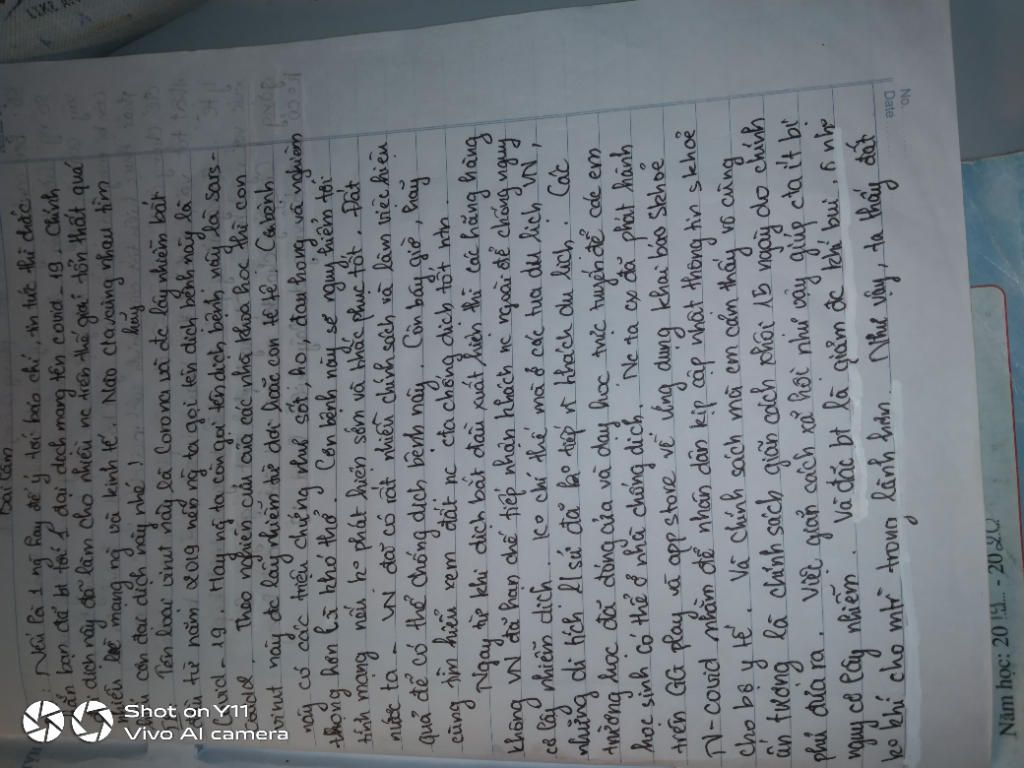 Bài làm
: Nếu là 1 ng hay để ý tới báo chí, tin tức thì chắc
hẳn bạn đã bt tới 1 đại dịch mang tên covid-19. Chính
dịch này đã làm cho nhiều nc trên thế giới tổn thất quá
nhiều về mạng ng và kinh tế. Nào cta cùng nhau tìm
hiểu cơn đại dịch này nhé!
hãy
Tên loại virut này là Corona và đc lây nhiễm bắt
đầu từ năm 2019 nên ng ta gọi tên dịch bệnh này là
Covid-19. Hay ng ta còn gọi tên dịch bệnh này là Sars-
CoV2. Theo nghiên cứu của các nhà khoa học thì con
virut này đc lây nhiễm từ dơi hoặc con tê tê. Cănbệnh
này có các triệu chứng như sốt, ho, đau họng và nghiêm
trọng hơn là khó thở. Cơn bệnh này sẽ nguy hiểm tới
tính mạng nếu ko phát hiện sớm và khắc phục tốt. Đất
nước ta - VN đã có rất nhiều chính sách và làm việc hiệu
quả để có thể chống dịch bệnh này. Còn bây giờ, hãy
cùng tìm hiểu xem đất nc cta chống dịch tốt ntn.
Ngay từ khi dịch bắt đầu xuất hiện thì các hãng hàng
không VN đã hạn chế tiếp nhận khách nc ngoài để chống nguy
cơ lây nhiễm dịch. Ko chỉ thế mà ở các tua du lịch VN,
những di tích l/sử đã ko tiếp n khách du lịch. Các
trường học đã đóng cửa và dạy học trực tuyến để các em
học sinh có thể ở nhà chống dịch. Nc ta cx đã phát hành
trên GG play và app store về ứng dụng khai báo skhoẻ
N-covid nhằm để nhân dân kịp cập nhật thông tin skhoẻ
cho bộ y tế. Và chính sách mà em cảm thấy vô cùng
ấn tượng là chính sách giãn cách phải 15 ngày do chính
phủ đưa ra. Việc giãn cách xã hội như vậy giúp cta ít bị
nguy cơ lây nhiễm. Và đặc bt là giảm đc khí bụi, ô nh
ko khí cho mtr trong lành hơn. Như vậy, ta thấy đất
No.
Date
Năm học: 2019 - 2020
Shot on Y11
Vivo AI camera